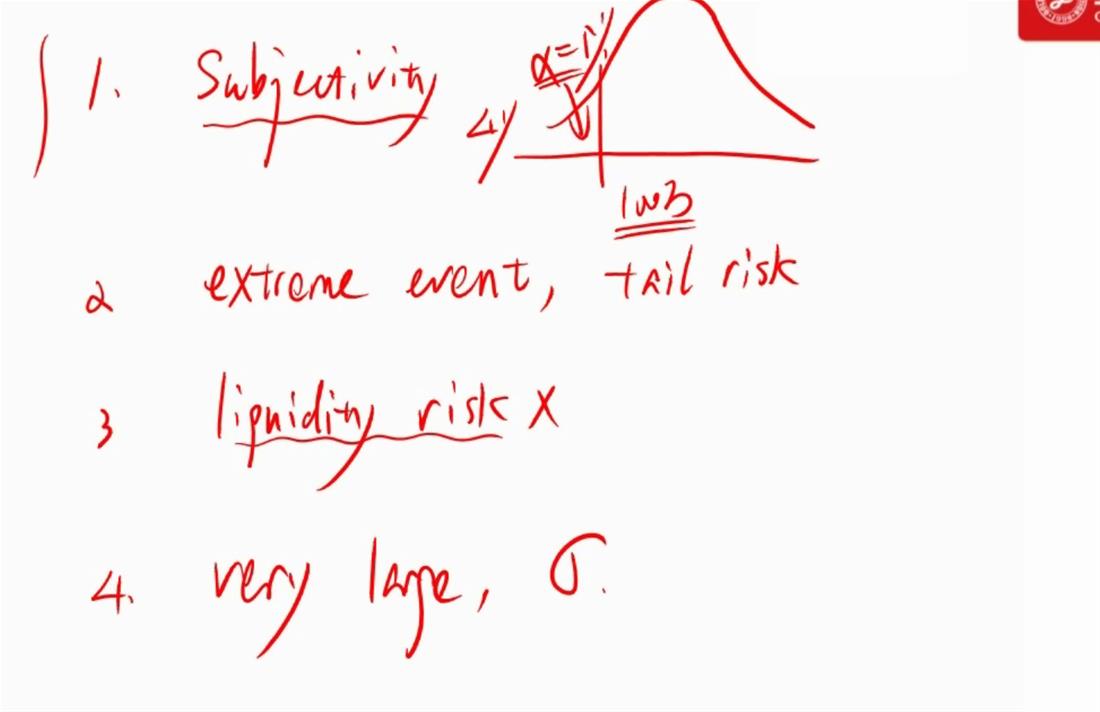 1. Subjectivity
2 extreme event, tail risk
3 liquidity risk X
4. very large, σ.